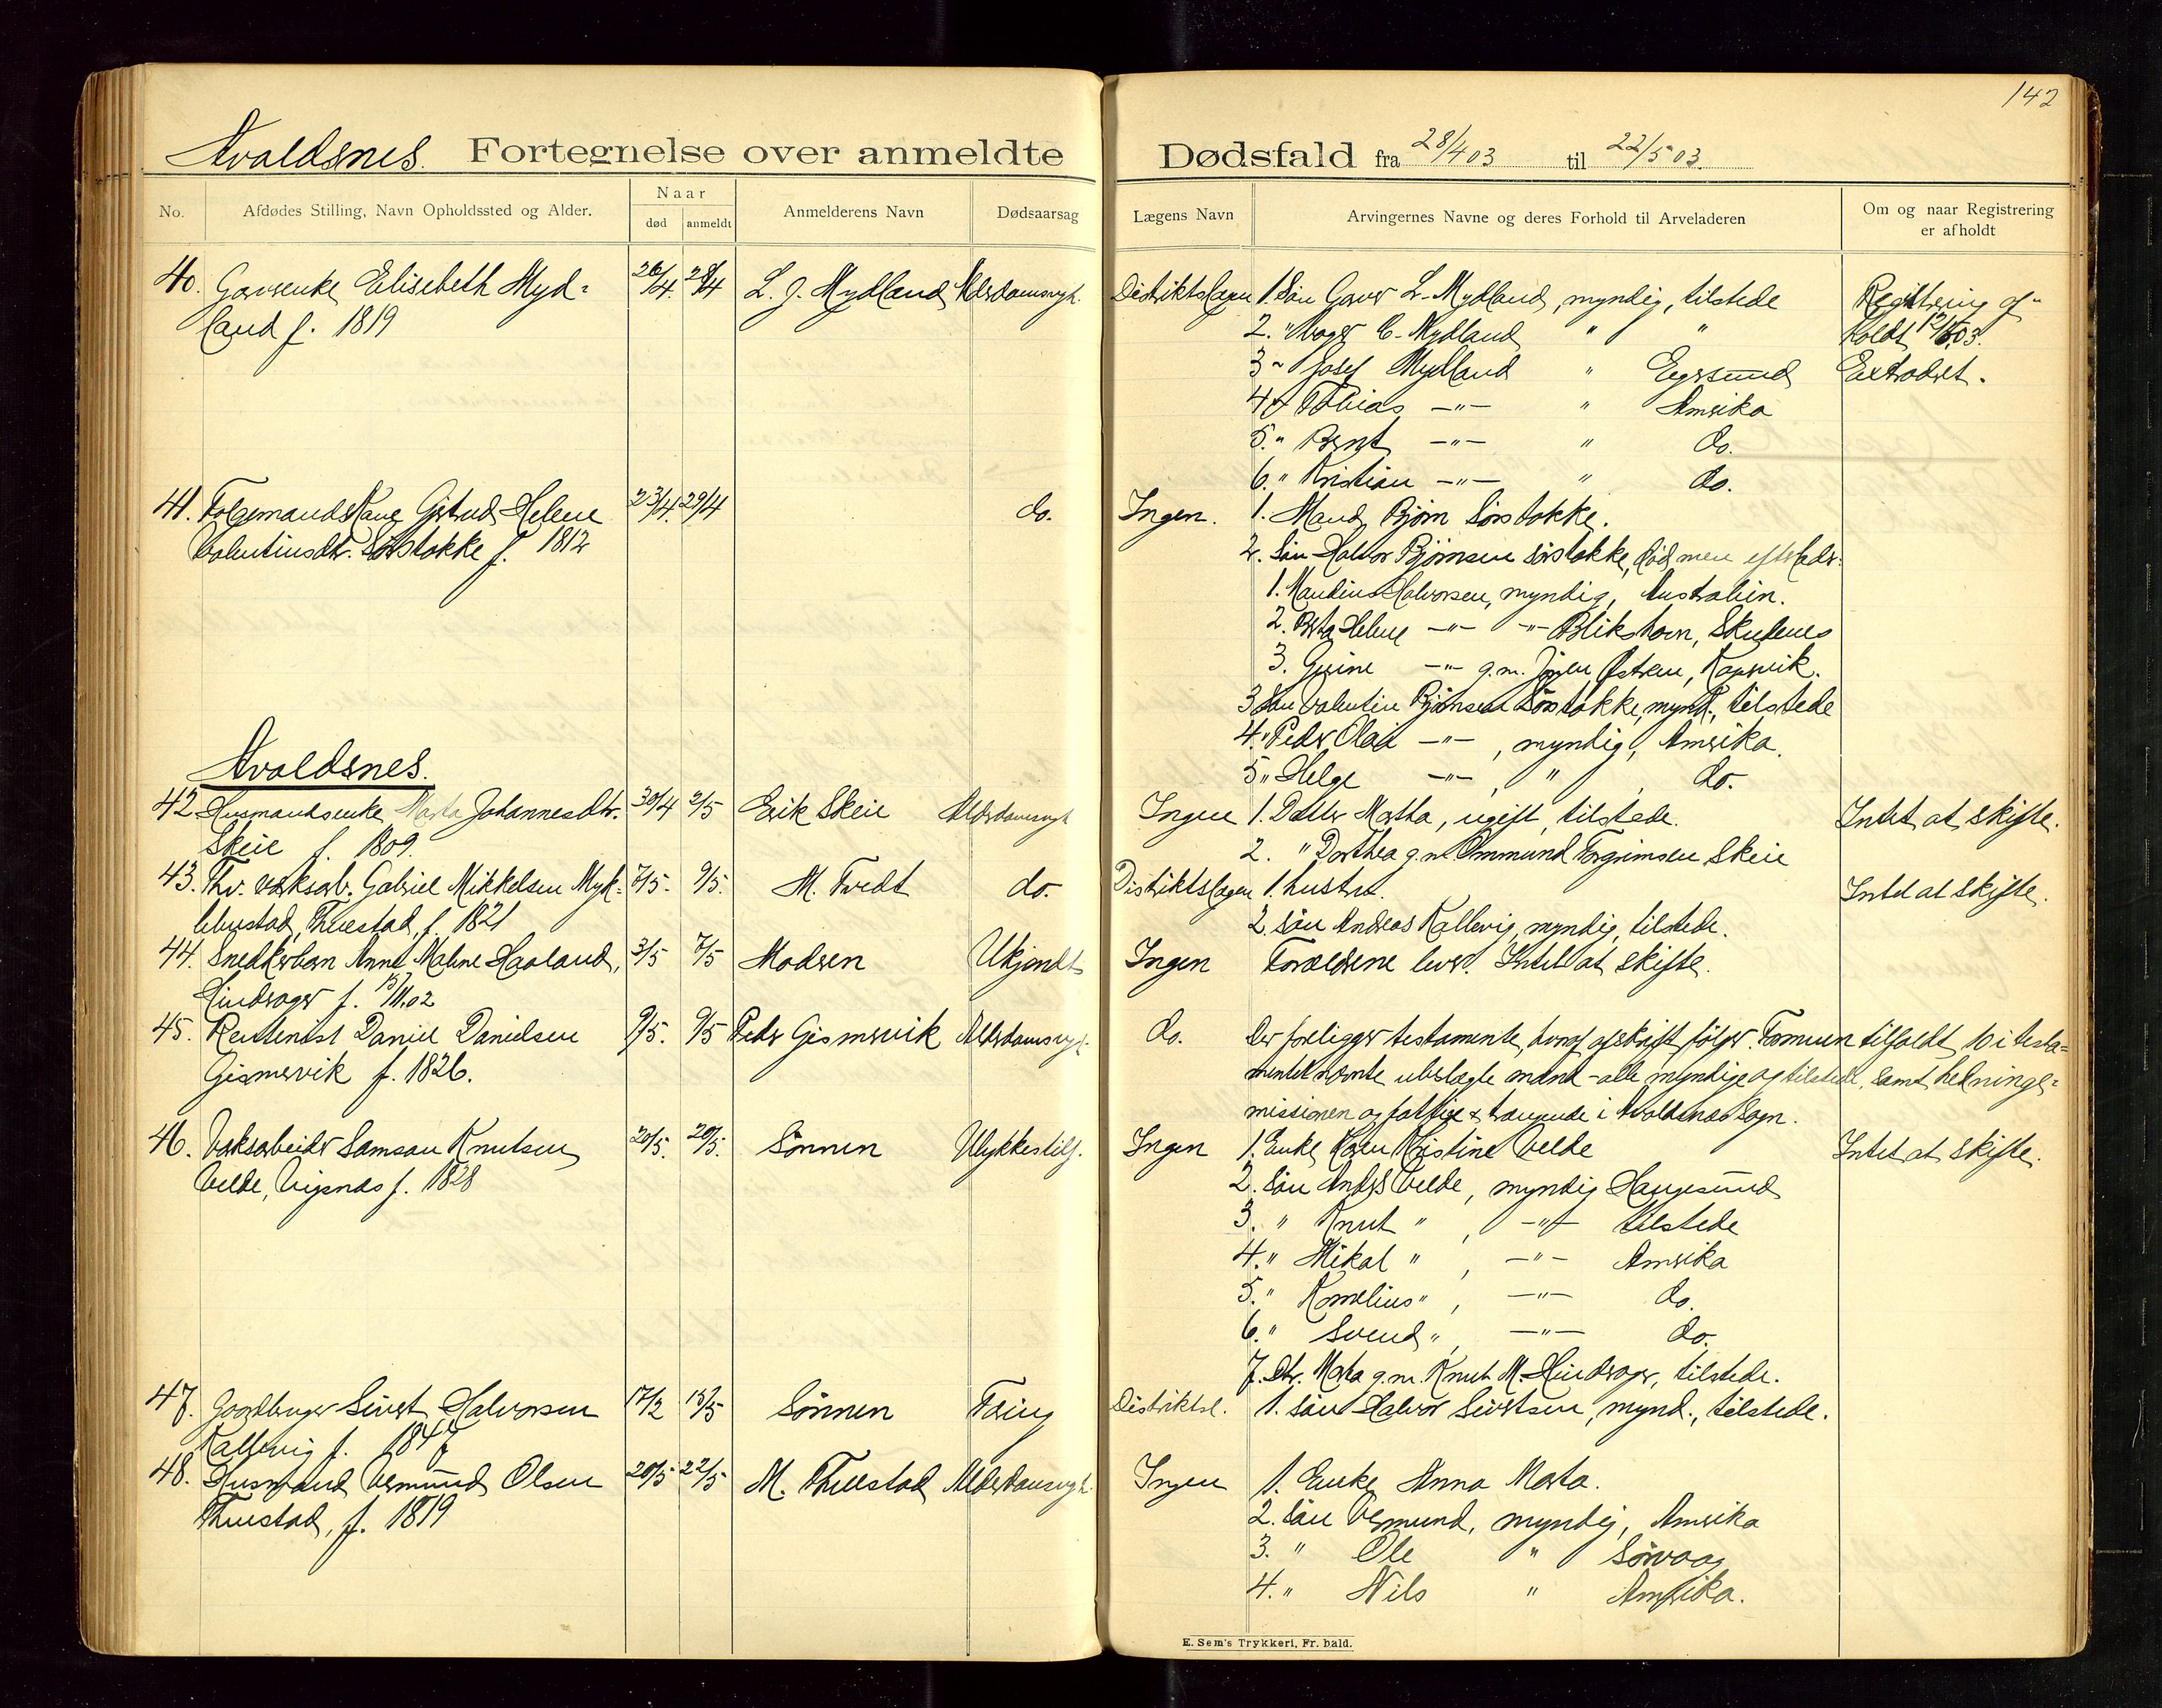 142
Avaldsnes. Fortegnelse over anmeldte Dødsfald fra 28/4 03 til 22/5 03.
No. Afdødes Stilling, Navn Opholdssted og Alder. Naar død anmeldt Anmelderens Navn Dødsaarsag Lægens Navn Arvingernes Navne og deres Forhold til Arveladeren Om og naar Registrering er afholdt
40. Garverenke Elisebeth Myd= 26/4. 28/4 L. J. Mydland Alderdomsvgh. Distriktslægen 1. Søn Garver L. Mydland, myndig, tilstede Registrering af-
land f. 1819 2. " Bager C. Mydland " " holdt 03.
3 " Josef Mydland " Egersund Extraderet.
4 " Tobias —"— " Amerika
5. " Bernt —"— " do.
6. " Kristian —"— " do.
41. Folgemandskone Gjertrud Helene 23/4. 29/4 do. Ingen. 1. Mand Bjørn Sørstokke.
Valentinsdtr. Sørstokke f. 1812 2. Søn Halvor Bjørnsen Sørstokke, død, men efterlader:
1. Maudius Halvorsen, myndig, Australien.
2. Berta Helene —"— —"— Blikshavn, Skudenes
3. Gjerine —"— g.m. Østrem, Kopervik.
3 Søn Valentin Bjørnsen Sørstokke, mynd., tilstede
4. " Peder Olai —"—, myndig, Amerika.
5 " Helge —"—, ", do.
Avaldsnes.
42 Husmandsenke Marta Johannesdtr. 30/4 2/5 Erik Skeie Alderdomsvgh Ingen 1. Datter Martha, ugift, tilstede. Intet at skifte.
Skeie f. 1809. 2. " Dorthea g.m. Ommund Torgrimsen Skeie
43. Fhv. værksarb. Gabriel Mikkelsen Myk- 7/5. 9/5. M. Tvedt do. Distriktslægen 1. hustru. Intet at skifte.
lebustad, Thuestad, f. 1821 2. Søn Andreas Kallevig, myndig, tilstede.
44. Snedkerbarn Anne Maline Haaland, 3/5 7/5 Moderen Ukjendt Ingen Forældrene lever. Intet at skifte.
Hindrager f. 02
45. Rentenist Daniel Danielsen 9/5. 9/5 Peder Gismervik Alderdomsvgh. do. Der foreligger testamente, hvoraf afskrift følger. Formuen tilfaldt 10 i testa=
Gismervik f. 1826. mentet nævnte ubeslægte mænd - alle myndige og tilstede, samt hedninge=
missionen og fattige & trængende i Avaldsnes Sogn.
46. Værksarbeider Samson Knutsen 20/5. 20/5. Sønnen Ulykkestilf. Ingen 1. Enke Karen Kristine Velde Intet at skifte.
Velde, Vigsnæs f. 1828 2. Søn Anders Velde, myndig Haugesund
3. " Knut ", —"— tilstede
4. " Mikal ", —"— Amerika
5. " Kornelius ", —"— do.
6. " Svend ", —"— do.
7. Dtr. Marta g.m. Knut M. Hindrager, tilstede.
47. Gaardbruger Sivert Halvorsen 17/2 Sønnen Tæring Distriktsl. 1. Søn Halvor Sivertsen, mynd., tilstede.
Kallevig f.
48. Husmand Vermund Olsen 20/5 22/5 M. Thuestad Alderdomsvgh. Ingen 1. Enke Anna Marta.
Thuestad, f. 1819 2. Søn Vermund, myndig, Amerika
3. " Ole " Sørvaag
4. " Nils " Amerika.
E. Sem's Trykkeri, Fr. hald.